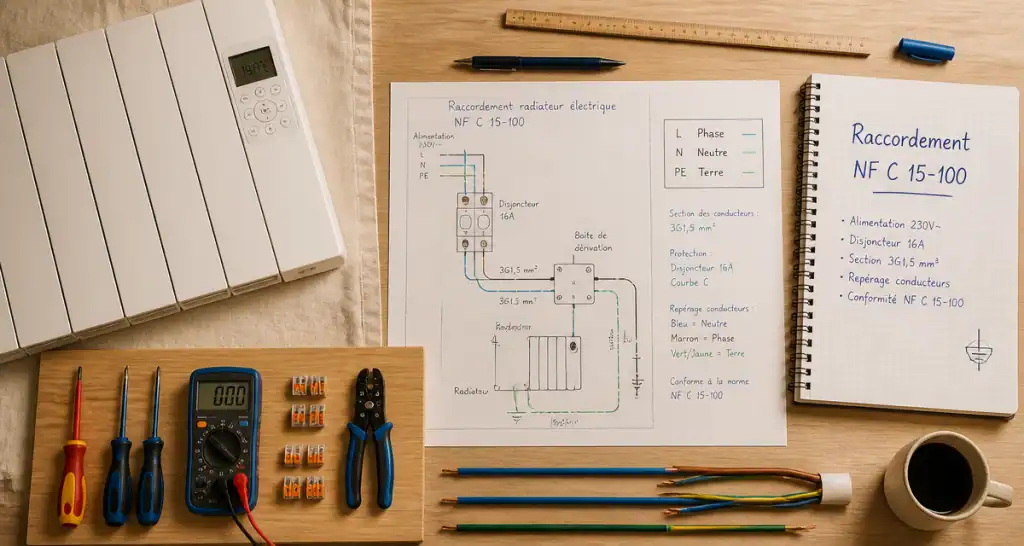 Raccordement radiateur électrique
NF C 15-100
Alimentation
230V~
L
N
PE
Disjoncteur
16A
Boite de
dérivation
3G1,5 mm²
3G1.3 mm²
Radiateur
L Phase
N Neutre
PE Terre
Section des conducteurs :
3G1,5 mm²
Protection :
Disjoncteur 16A
Courbe C
Repérage conducteurs :
Bleu = Neutre
Marron = Phase
Vert/Jaune = Terre
Conforme à la norme
NF C 15-100
Raccordement
NF C 15-100
• Alimentation 230V~
• Disjoncteur 16A
• Section 3G1,5 mm²
• Repérage conducteurs
• Conformité NF C 15-100
000